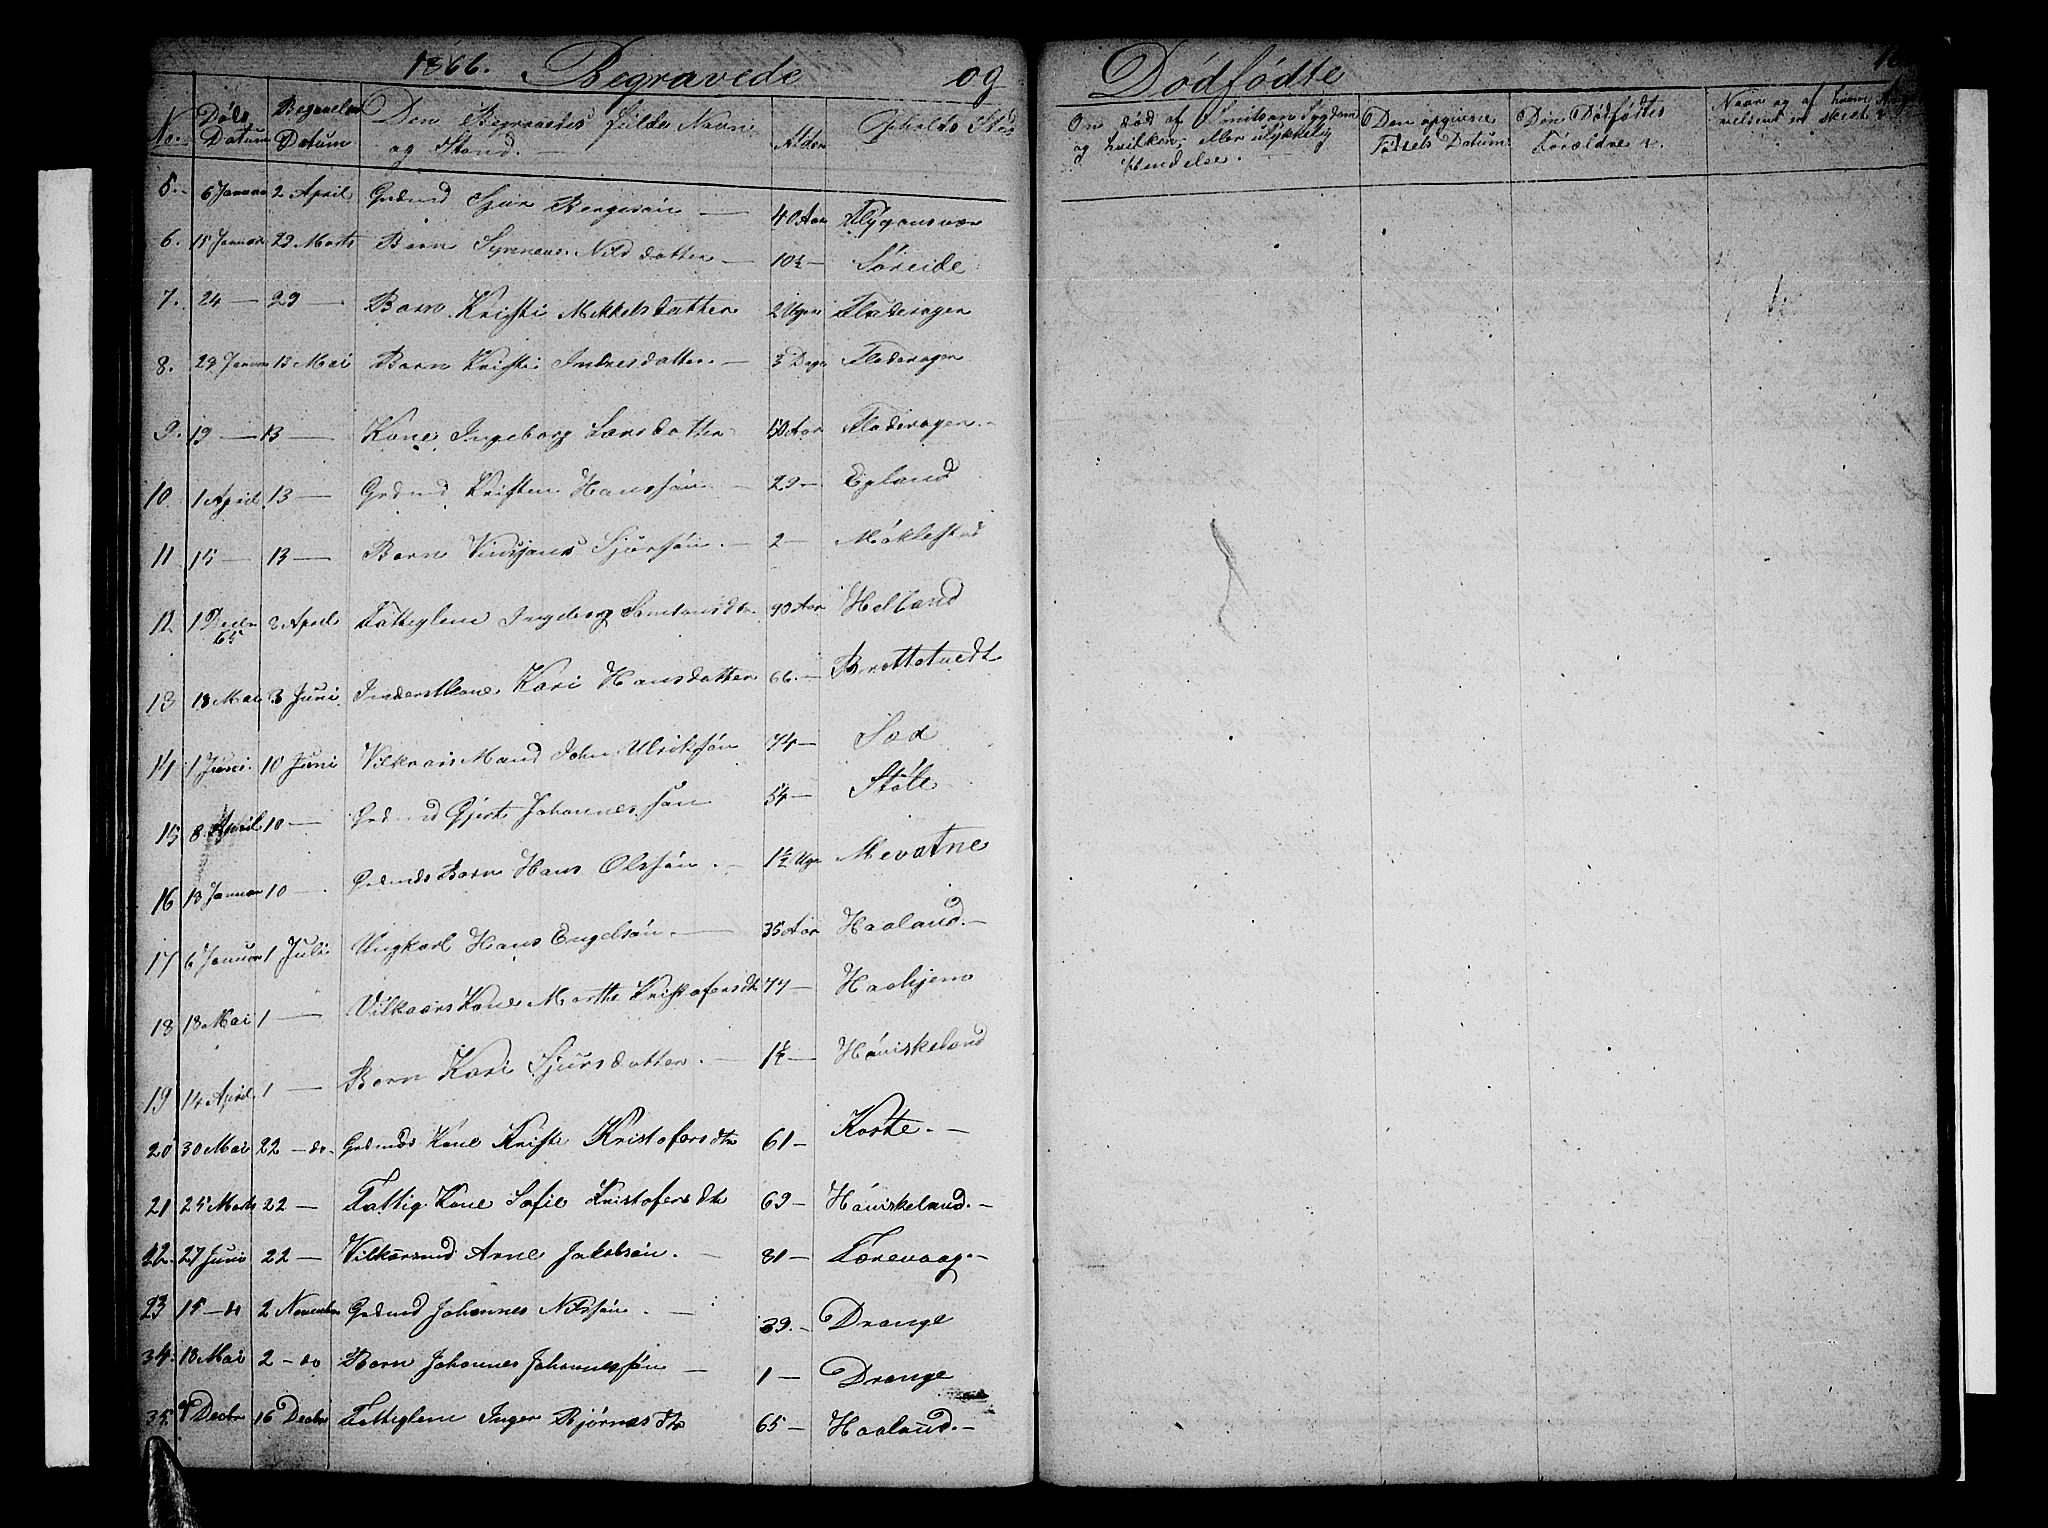 1866. Begravede og Dødfødte
No. Døds Datum Begravelses Datum Den Begravedes fulde Navn og Stand. Alder Opholds Sted Om død af Smitsom Sygdom og hvilken; eller ulykkelig Hendelse. Den opgivne Fødsels Datum Den Dødfødtes Forældre Naar og af hvem
5. 6 Januar 2 April Grdmd Sjur Bergeson 40 Aar
6. 15 Januar 29 Marts Barn Nilsdatter 10½ Søreide
7. 24 — 29 — Barn Kristi Mikkelsdatter 2 Uger Fladeragen
8. 29 Januar 13 Mai Barn Kristi Indresdatter 3 Dage Fladeragen
9. 19 — 13 — Kone Ingeborg Larsdatter 50 Aar Fladeragen
10. 1 April 13 — Grdmd Kristen Hanssøn 29 — Egland
11 15 — 13 — Barn Sjurssøn 2 — Møklestad
12 1 Decbr 65 2 April Fattiglem Ingeborg 90 Aar Helland
13 18 Mai 3 Juni Kari Hansdatter 66 — Brattetvedt
14 1 Juni 10 Juni Vilkaars Mand John Ulrikssøn 74 — Sæd
15 8 April 10 — Grdmd Gjert Johannessøn 54 — Støle
16 13 Januar 10 — Grdmds Barn Hans Olssøn 1½ Uger Mevatne
17 6 Januar 1 Juli Ungkarl Hans Engelsøn 35 Aar Haaland
18 18 Mai 1 — Vilkaars Kone Marthe Kristofersdtr 77 — Haahjem
19 14 April 1 — Barn Kari Sjursdatter 1½ — Høviskeland
20 30 Mai 22 — do. Grdmds Kone Kristi Kristofersdtr 61 — Koste
21 25 Marts 22 — Fattig Kone Sofie Kristofersdtr 69 — Høviskeland
22. 27 Juni 22 — Vilkårsmd Arne Jakobsøn. 81 — Førevaag
23 15 — do 2 November Grdmd Johannes Nilssøn 39. — Drange
34. 18 Mai 2 — do Barn Johannes Johannessøn 1 — Drange
35 9 Decbr 16 Decbr Fattiglem Inger Bjørnesdtr 65 — Haaland